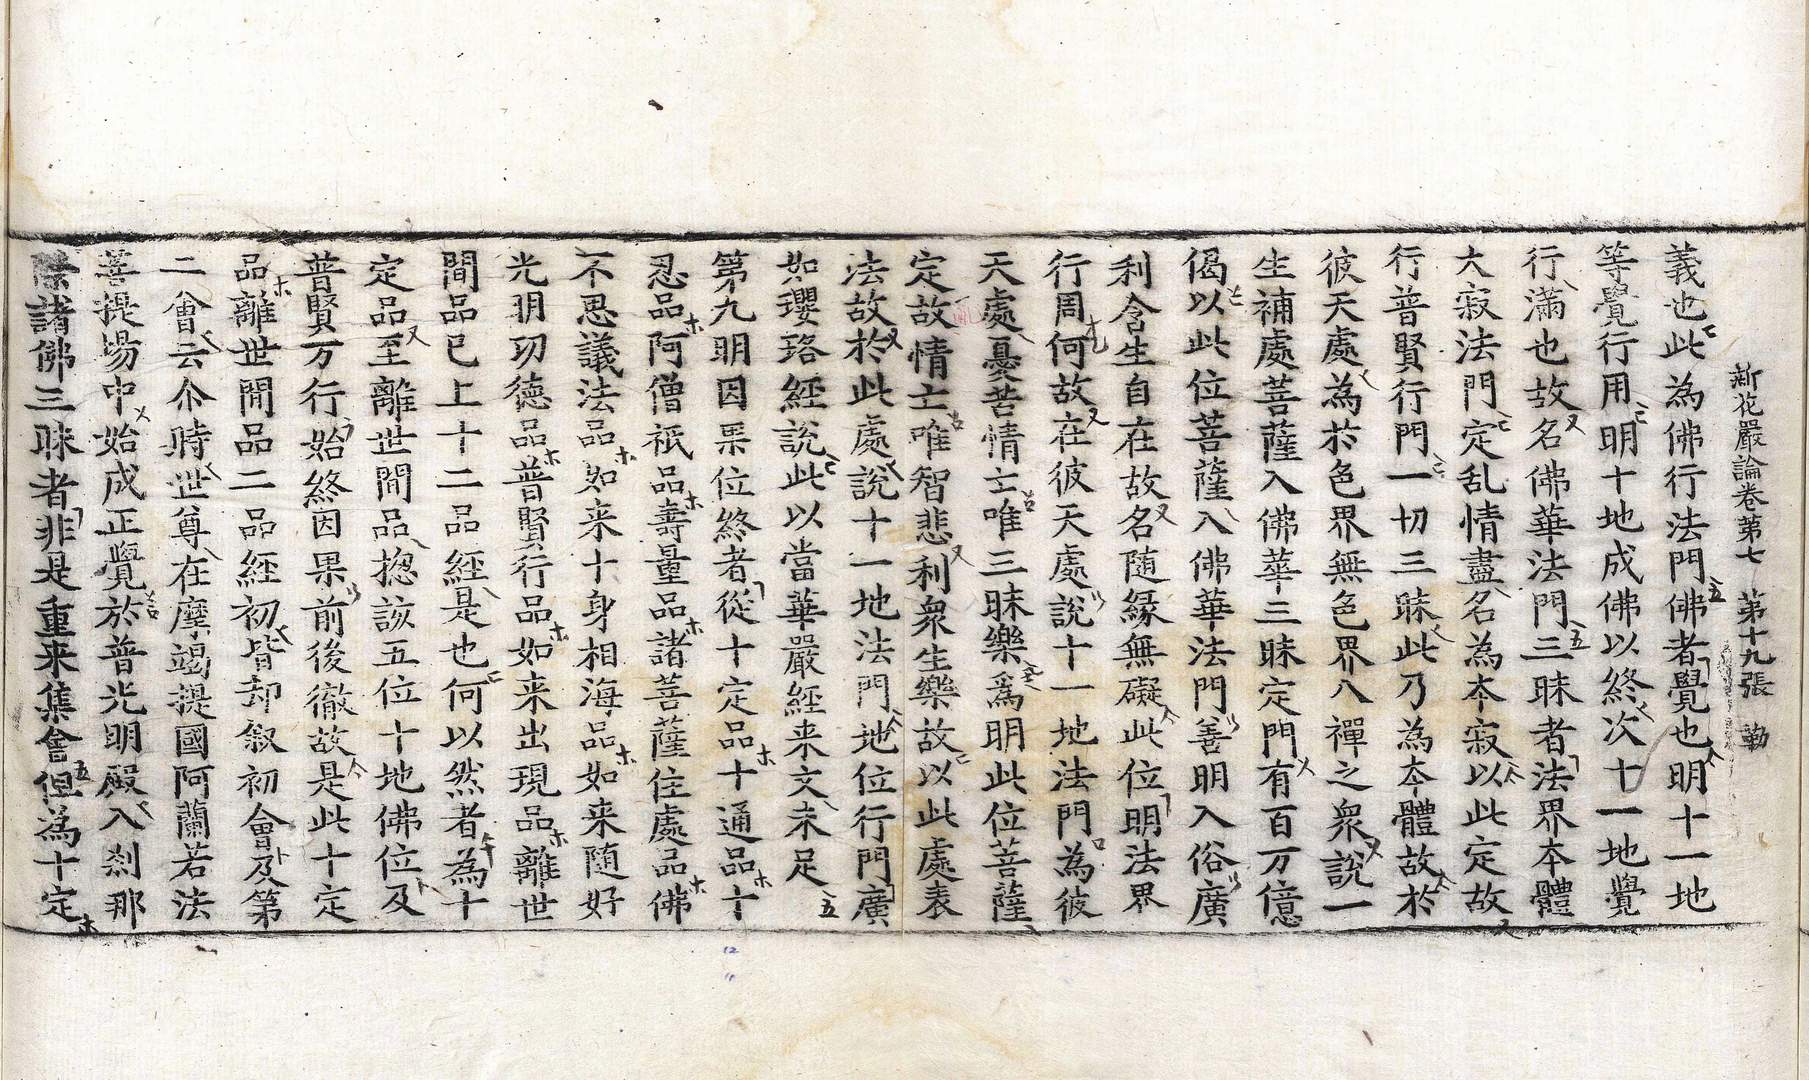 新花嚴論卷第七　第十九張　勒
義也此為佛行法門佛者覺也明十一地
等覺行用明十地成佛以終次十一地覺
行滿也故名佛華法門三昧者法界夲體
大寂法門定乱情盡名為夲寂以此定故
行普賢行門一切三昧此乃為夲體故於
彼天處為於色界無色界八禪之衆說一
生補處菩薩入佛華三昧定門有百万億
偈以此位菩薩入佛華法門善明入俗廣
利含生自在故名随緣無礙此位明法界
行周何故在彼天處說十一地法門為彼
天處憂苦情亡唯三昧樂爲明此位菩薩
定故情亡唯智悲利衆生樂故以此處表
法故於此處說十一地法門地位行門廣
如瓔珞經說此以當華嚴經来文未足
第九明因果位終者從十定品十通品十
忍品阿僧祇品壽量品諸菩薩住處品佛
不思議法品如来十身相海品如来随好
光明功德品普賢行品如来出現品離世
間品已上十二品經是也何以然者為十
定品至離世間品揔該五位十地佛位及
普賢万行始終因果前後徹故是此十定
品離世間品二品經初皆却叙初會及第
二會云尒時世尊在摩竭提國阿蘭若法
菩提場中始成正覺於普光明殿入刹那
際諸佛三昧者非是重来集會但為十定